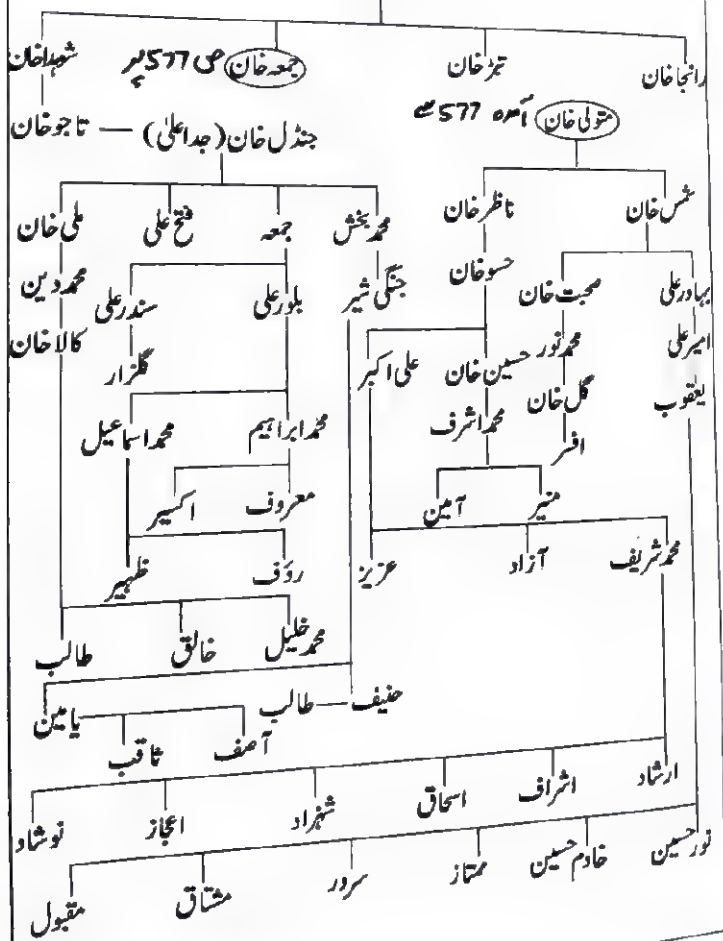 رانجا خان تیڑ خان جمعہ خان ص 577 پر شوہدا خان
متولی خان آمدہ 577 سے
جنڈل خان (جد اعلیٰ) — تاجو خان
شمس خان ناظر خان محمد بخش جمعہ فتح علی ملی خان
بہادر علی صحبت خان حسو خان جنگی شیر بلور علی سندر علی محمد دین
امیر علی محمد نور حسین خان علی اکبر گلزار کالا خان
یعقوب گل خان محمد اشرف محمد ابراہیم محمد اسماعیل
افسر منیر آمین معروف اکسیر
محمد شریف آزاد عزیز رؤف ظہیر
محمد خلیل خالق طالب
حنیف — طالب یامین
آصف ثاقب
ارشاد اشراف اسحاق شہزاد اعجاز نوشاد
نور حسین خادم حسین ممتاز سرور مشتاق مقبول